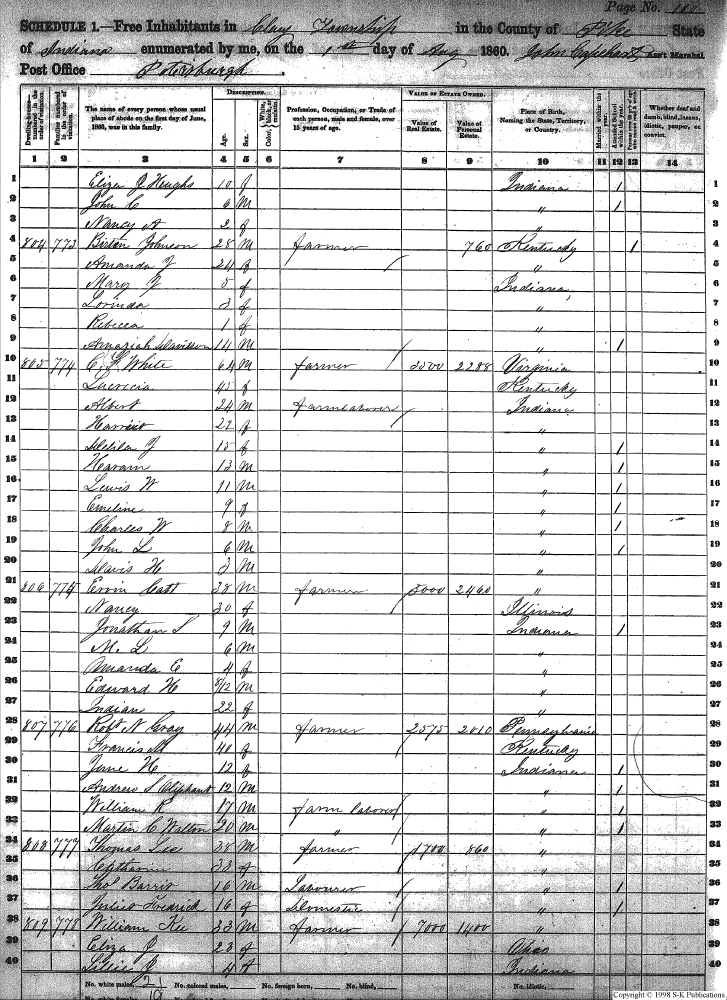 Page No.
SCHEDULE 1.—Free Inhabitants in Clay Township in the County of Pike State
of Indiana enumerated by me, on the 1st day of Aug 1860. John Ass't Marshal
Post Office Petersburgh.
Dwelling-houses numbered in the order of visitation.
Families numbered in the order of visitation.
The name of every person whose usual place of abode on the first day of June, 1860, was in this family.
DESCRIPTION.
Age.
Sex.
Color, White, black, or mulatto.
Profession, Occupation, or Trade of each person, male and female, over 15 years of age.
VALUE OF ESTATE OWNED.
Value of Real Estate.
Value of Personal Estate.
Place of Birth, Naming the State, Territory, or Country.
Married within the year.
Attended School within the year.
Whether deaf and dumb, blind, insane, idiotic, pauper, or convict.
1 2 3 4 5 6 7 8 9 10 11 12 13 14
1 Eliza J Heughs 10 f Indiana / 1
2 John C 6 m " / 2
3 Nancy A 2 f " 3
4 804 773 Johnson 28 m farmer 760 Kentucky 1 4
5 Amanda J 24 f / " 5
6 Mary J 5 f Indiana 6
7 Lorinda 3 f " 7
8 Rebecca 1 f " 8
9 Amaziah Davisson 14 m / " / 9
10 805 774 C. White 64 m farmer 3500 2288 Virginia 10
11 Lucrecia 45 f Kentucky 11
12 Albert 24 m farm laborer Indiana 12
13 Harriet 22 f / " 13
14 Delila J 15 f " / 14
15 Haram 13 m " / 15
16 Lewis W 11 m " / 16
17 Emeline 9 f " / 17
18 Charles W 8 m " / 18
19 John L 6 m " / 19
20 Davis H 3 m " 20
21 806 775 Ervin Catt 38 m farmer 5000 2460 " 21
22 Nancy 30 f / Illinois 22
23 Jonathan S 9 m Indiana / 23
24 M. L 6 m " 24
25 Amanda E 4 f " 25
26 Edward H 8/12 m " 26
27 Indian 22 f " 27
28 807 776 Robt N Gray 44 m farmer 2575 2010 Pennsylvania 28
29 Francis M 40 f / Kentucky 29
30 Jane H 12 f Indiana / 30
31 Andrew S Oliphant 12 m " / 31
32 William R 17 m farm laborer " / 32
33 Martin C Walton 20 m " / " / 33
34 808 777 Thomas Lee 38 m farmer 1700 860 " 34
35 33 f / " 35
36 Thos Barrit 16 m Labourer " / 36
37 Fredrick 16 f Domestic " / 37
38 809 778 William Kee 33 m farmer 7000 1400 " 38
39 Eliza J 23 f / Ohio 39
40 Lillie J 4 f Indiana 40
No. white males, 21 No. colored males, No. foreign born, No. blind, No. idiotic,
Copyright © 1998 S-K Publications